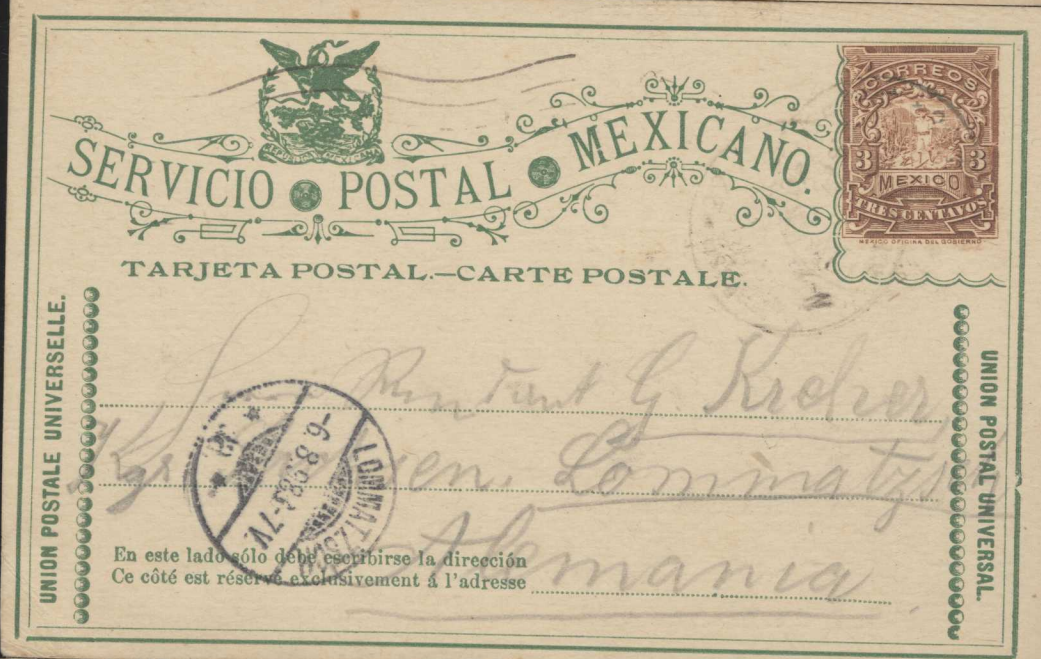 SERVICIO POSTAL MEXICANO.
CORREOS
3 3
MEXICO
TRES CENTAVOS
MEXICO OFICINA DEL GOBIERNO
TARJETA POSTAL.—CARTE POSTALE.
UNION POSTALE UNIVERSELLE.
UNION POSTAL UNIVERSAL.
G.
Lommatzsch
Alemania
LOMMATZSCH
6 8 98 6-7 V.
En este lado sólo debe escribirse la dirección
Ce côté est réservé exclusivement á l'adresse